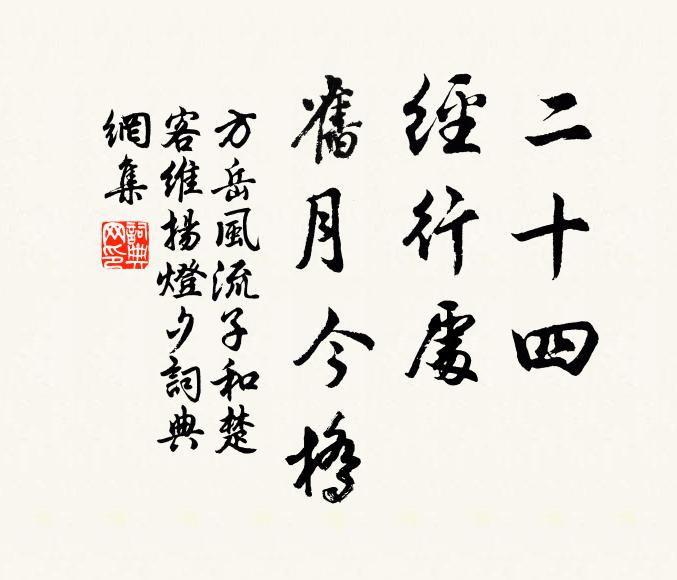 二十四
經行處
舊月今橋
方岳風流子和楚
客維揚燈夕詞典
網集
詞典网印